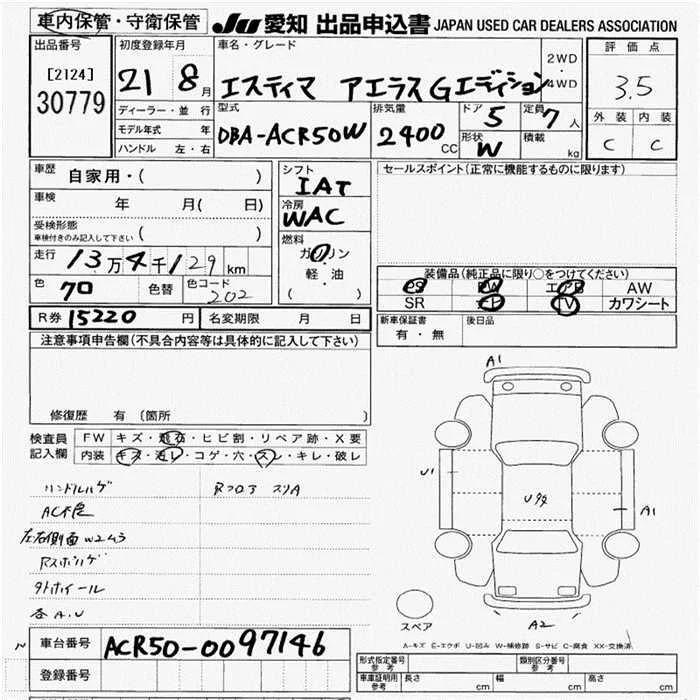 車内保管・守衛保管
JU 愛知 出品申込書 JAPAN USED CAR DEALERS ASSOCIATION
出品番号
[2124]
30779
初度登録年月
21 8月
車名・グレード
エスティマ アエラスGエディション
2WD・4WD
評価点
3.5
外装 内装
C C
ディーラー・並行
モデル年式 年
ハンドル 左・右
型式
DBA-ACR50W
排気量
2400 CC
ドア 5
定員 7人
形状 W
積載 kg
車歴
自家用・( )
車検 年 月( 日)
受検形態
車検付きのみ記入して下さい ( )
走行 13万4千129km
色 70 色替 色コード 202
シフト
IAT
冷房
WAC
燃料
ガソリン
軽・油
( )
セールスポイント(正常に機能するものに限ります)
装備品(純正品に限り○をつけてください)
PS PW エアB AW
SR ナビ TV カワシート
R券 15220円 名変期限 月 日
新車保証書
有・無
後日品
注意事項申告欄(不具合内容等は具体的に記入して下さい)
修復歴 有 (箇所 )
検査員
記入欄
FW キズ・飛石・ヒビ割・リペア跡・X要
内装 キズ・汚レ・コゲ・穴・スレ・キレ・破レ
ハンドルハゲ
AC不良
左右側面W2ムラ
タホイール
各A.U
A1
U1
A1
A2
スペア
A-キズ E-エクボ U-凹み W-補修跡 S-サビ C-腐食 XX-交換済
N
車台番号 ACR50-0097146
登録番号
形式指定番号
参考
類別区分番号
参考
車庫証明用
参考
長さ cm 幅 cm 高さ cm